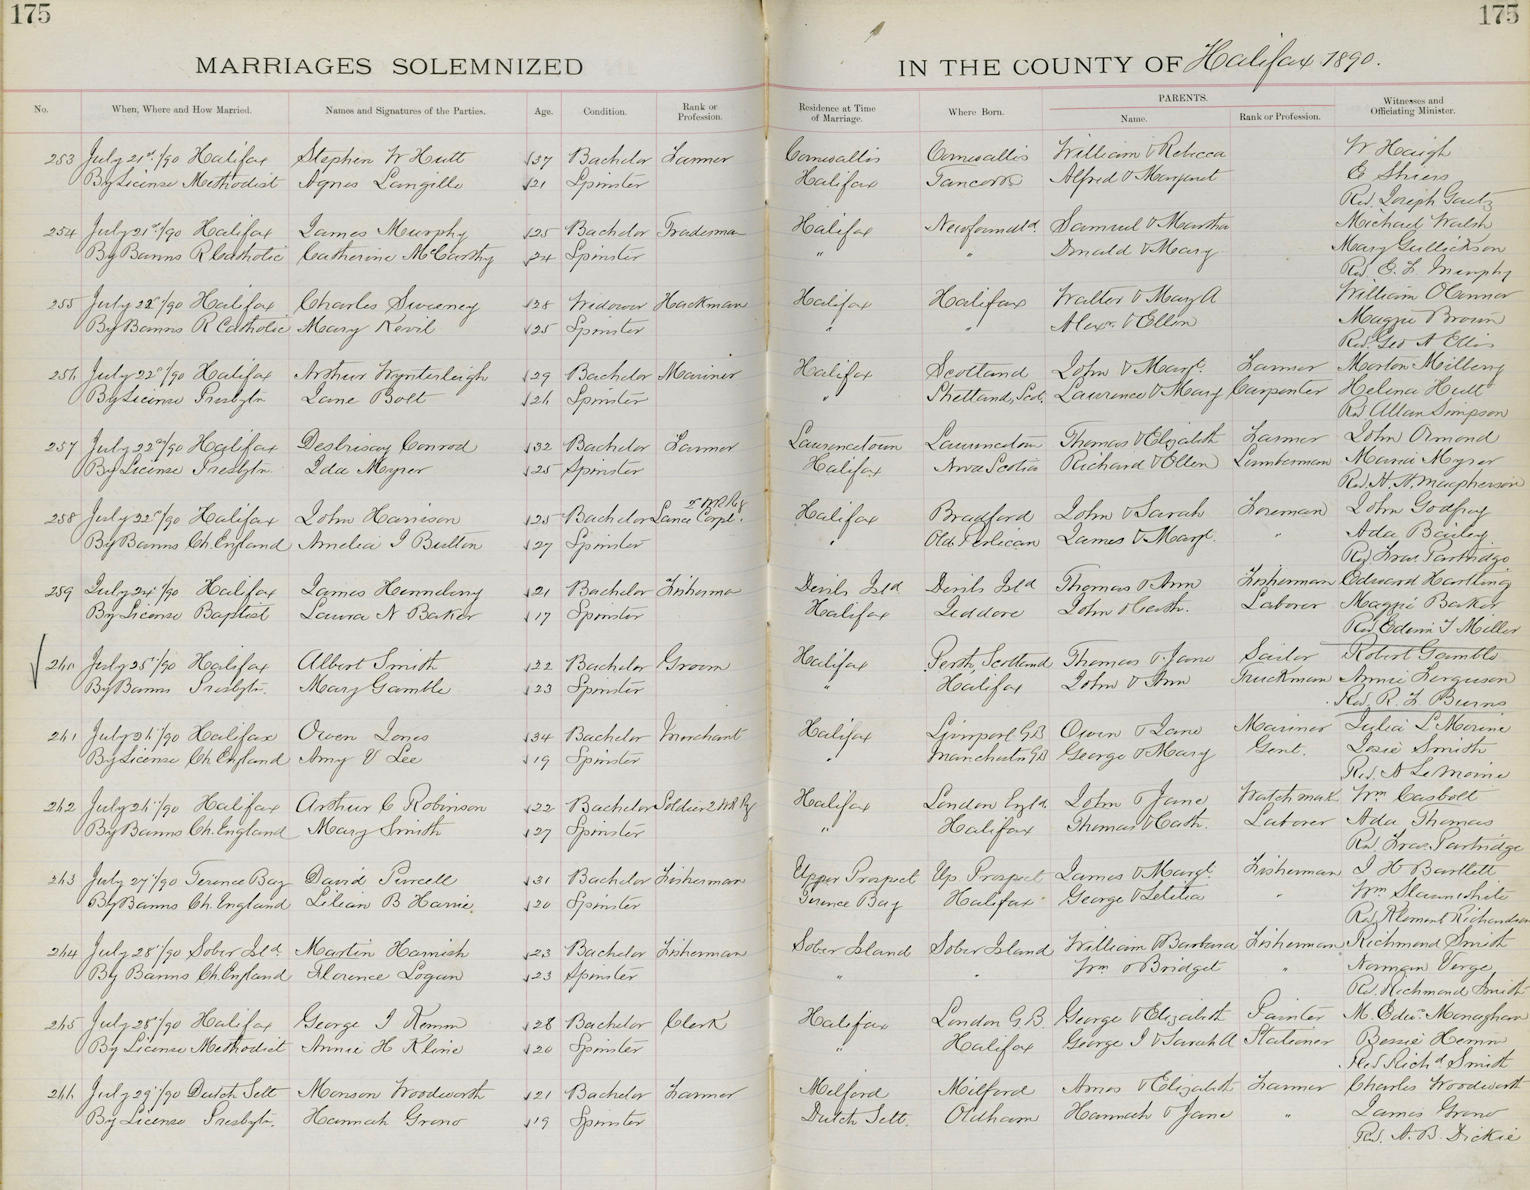 175
175
MARRIAGES SOLEMNIZED
IN THE COUNTY OF Halifax 1890.
No. When, Where and How Married. Names and Signatures of the Parties. Age. Condition. Rank or Profession. Residence at Time of Marriage. Where Born. PARENTS. Name. Rank or Profession. Witnesses and Officiating Minister.
253 July 21st/90 Halifax Stephen W Hutt 37 Bachelor Farmer Cornwallis Cornwallis William & Rebecca W Haigh
By License Methodist Agnes Langille 21 Spinster Halifax Tancook Alfred & Margaret E Shiers
Rev. Joseph Gaetz
254 July 21st/90 Halifax James Murphy 25 Bachelor Tradesman Halifax Newfoundld Samuel & Martha Michael Walsh
By Banns R Catholic Catherine McCarthy 24 Spinster " " Donald & Mary Mary Gullickson
Rev. E. F. Murphy
255 July 22d/90 Halifax Charles Sweeney 28 Widower Hackman Halifax Halifax Walter & Mary A William OConnor
By Banns R Catholic Mary Kevil 25 Spinster " " Alexr. & Ellen Maggie Brown
Rev. Geo A Ellis
256 July 22d/90 Halifax Arthur Wynterleigh 29 Bachelor Mariner Halifax Scotland John & Margt. Farmer Morton Milbery
By License Presbytn Jane Bolt 26 Spinster " Shetland, Scot. Lawrence & Mary Carpenter Helena Hutt
Rev Allan Simpson
257 July 22d/90 Halifax Desbrisay Conrod 32 Bachelor Farmer Lawrencetown Lawrencetown Thomas & Elizabeth Farmer John Ormond
By License Presbytn. Ida Myrer 25 Spinster Halifax Nova Scotia Richard & Ellen Lumberman Maria Myrer
Rev. H. H. Macpherson
258 July 22d/90 Halifax John Harrison 25 Bachelor Lance Corpl. 2 W R Rg Halifax Bradford John & Sarah Foreman John Godfrey
By Banns Ch. England Amelia J Button 27 Spinster " Old Perlican James & Margt. " Ada Bailey
Rev Fras. Partridge
259 July 24th/90 Halifax James Henneberry 21 Bachelor Fisherman Devils Isld Devils Isld Thomas & Ann Fisherman Edward Hartling
By License Baptist Laura N Baker 17 Spinster Halifax Jeddore John & Cath. Laborer Maggie Baker
Rev. Edwin T Miller
260 July 25th/90 Halifax Albert Smith 22 Bachelor Groom Halifax Perth, Scotland Thomas & Jane Sailor Robert Gamble
By Banns Presbytn. Mary Gamble 23 Spinster " Halifax John & Ann Truckman Annie Ferguson
Rev. R. F Burns
261 July 26th/90 Halifax Owen Jones 34 Bachelor Merchant Halifax Liverpool G.B Owen & Jane Mariner Julia L Morine
By License Ch. England Amy V Lee 19 Spinster " Manchester G.B George & Mary Gent. Josie Smith
Rev. A LeMoine
262 July 26th/90 Halifax Arthur C Robinson 22 Bachelor Soldier 2 W R Rg Halifax London Engld. John & Jane Watchmak. Wm Casbolt
By Banns Ch. England Mary Smith 27 Spinster " Halifax Thomas & Cath. Laborer Ada Thomas
Rev. Fras. Partridge
263 July 27th/90 Terence Bay David Purcell 31 Bachelor Fisherman Upper Prospect Up. Prospect James & Margt. Fisherman J H Bartlett
By Banns Ch. England Lilian B Harrie. 20 Spinster Terence Bay Halifax George & Letitia " Wm Slaunwhite
Rev. Richardson
264 July 28th/90 Sober Isld. Martin Harnish 23 Bachelor Fisherman Sober Island Sober Island William & Barbara Fisherman Richmond Smith
By Banns Ch. England Florence Logan 23 Spinster " " Wm & Bridget " Norman Verge
Rev. Richmond Smith
265 July 28th/90 Halifax George J Remm 28 Bachelor Clerk Halifax London G.B. George & Elizabeth Painter M. Edwd. Monaghan
By License Methodist Annie H Kline 20 Spinster " Halifax George J & Sarah A Stationer Bessie Hemm
Rev Richd Smith
266 July 29th/90 Dutch Sett Monson Woodworth 21 Bachelor Farmer Milford Milford Amos & Elizabeth Farmer Charles Woodworth
By License Presbytn. Hannah Grono 19 Spinster Dutch Sett. Oldham Hannah & Jane " James Grono
Rev. A. B. Dickie